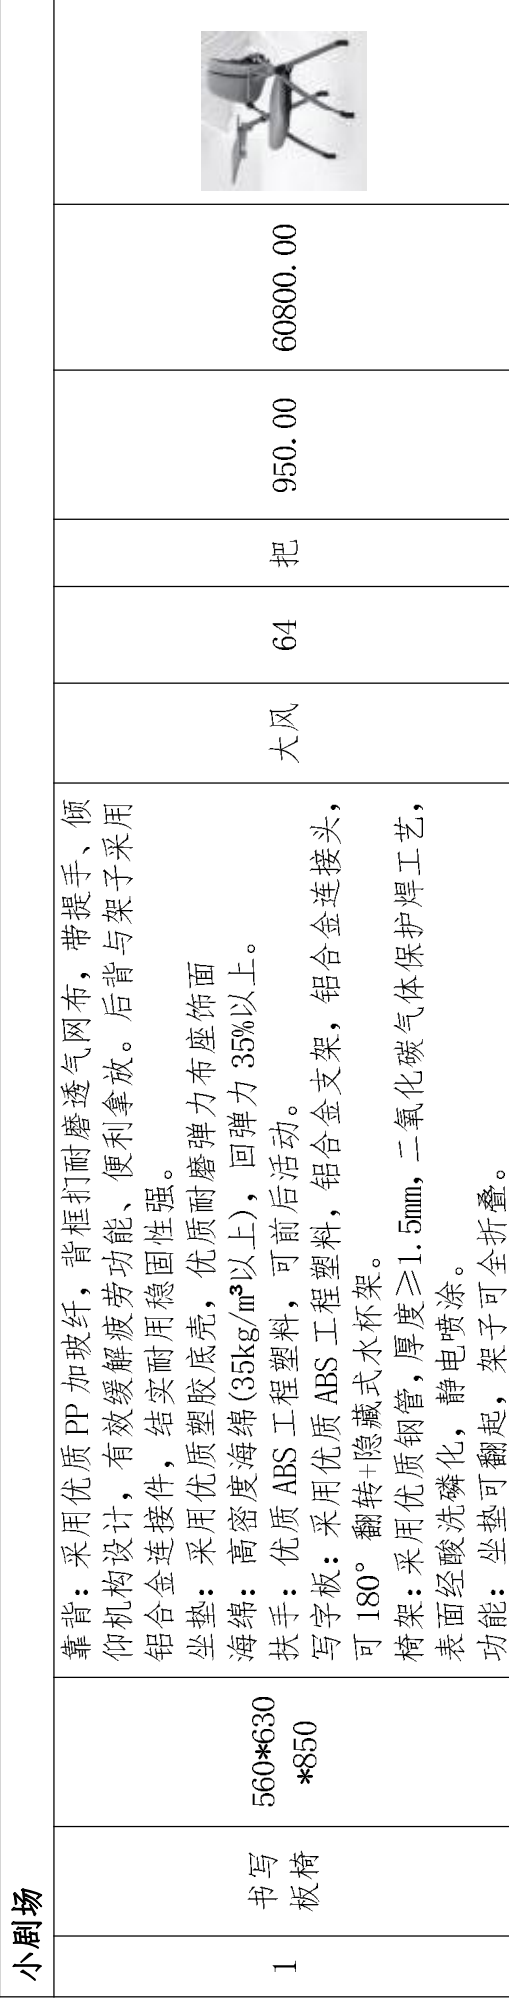 小剧场
1
书写
板椅
560*630
*850
靠背：采用优质 PP 加玻纤，背框扪耐磨透气网布，带提手、倾
仰机构设计，有效缓解疲劳功能、便利拿放。后背与架子采用
铝合金连接件，结实耐用稳固性强。
坐垫：采用优质塑胶底壳，优质耐磨弹力布座饰面
海绵：高密度海绵(35kg/m³以上)，回弹力 35%以上。
扶手：优质 ABS 工程塑料，可前后活动。
写字板：采用优质 ABS 工程塑料，铝合金支架，铝合金连接头，
可 180° 翻转+隐藏式水杯架。
椅架：采用优质钢管，厚度≥1.5mm，二氧化碳气体保护焊工艺，
表面经酸洗磷化，静电喷涂。
功能：坐垫可翻起，架子可全折叠。
大风
64
把
950.00
60800.00